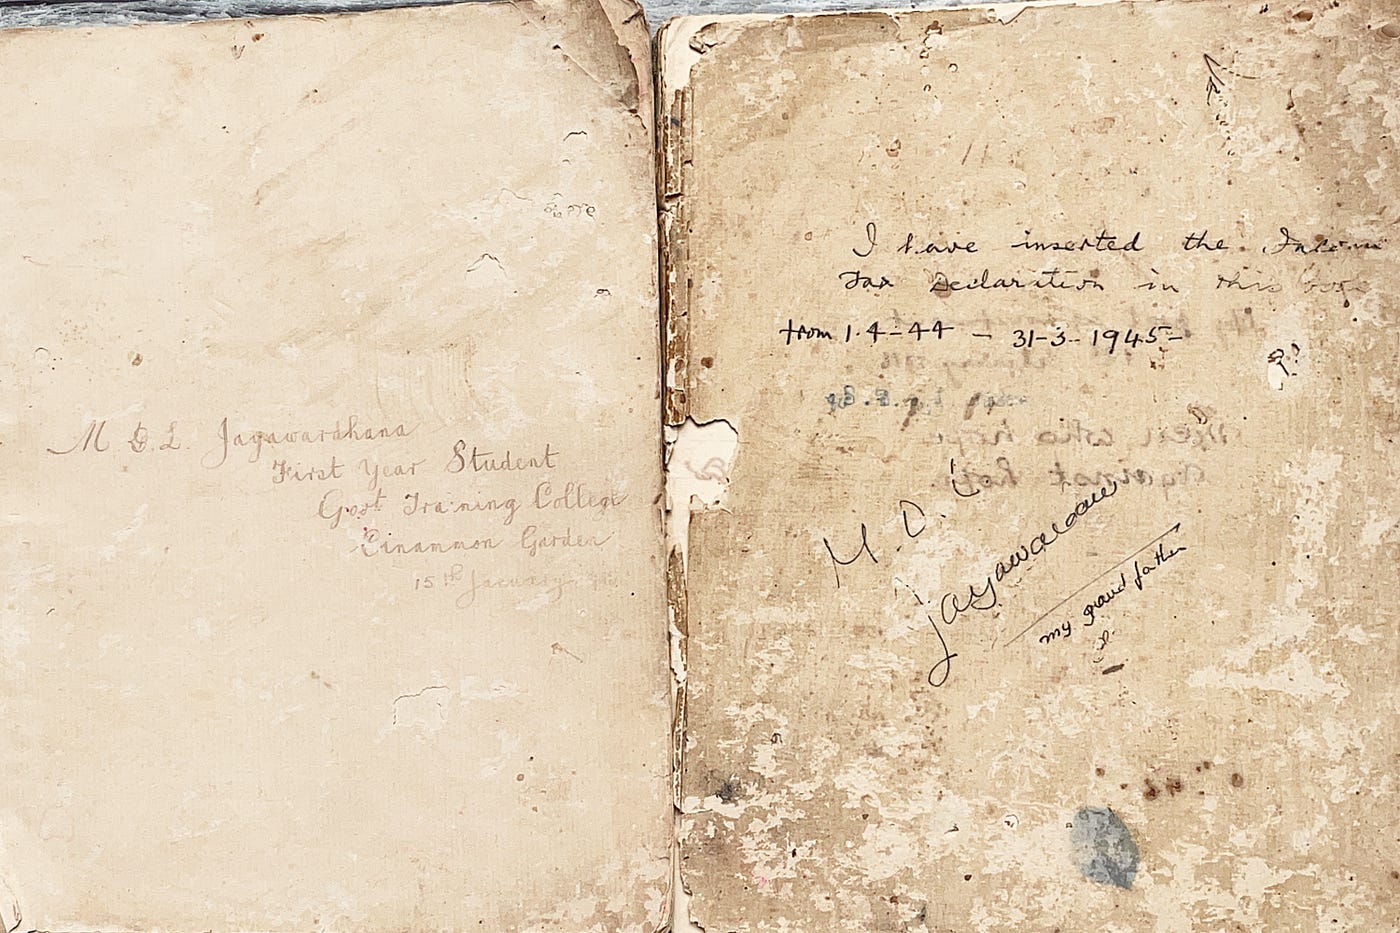 M D. L. Jayawardhana
First Year Student
Govt Training College
Cinammon Garden
15th January
I have inserted the Income
Tax Declaration in this book
from 1.4-44 - 31-3-1945-
M. D. L
Jayawardane
my grand father